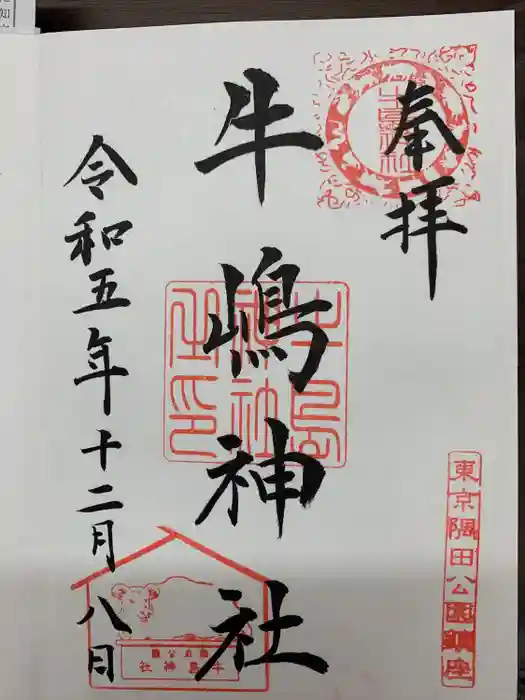 奉拝
牛嶋神社
令和五年十二月八日
東京隅田公園鎮座
牛島神社